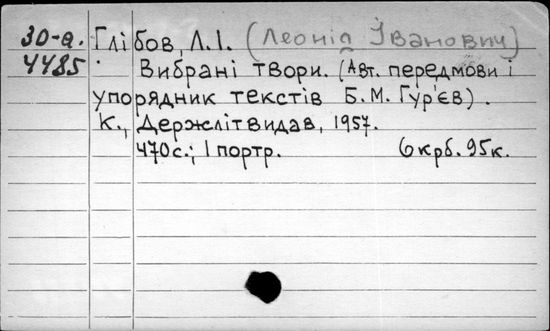 30-а. Глібов, Л.І. (Леонід Іванович)
4485 Вибрані твори. (Авт. передмови і
упорядник текстів Б.М. Гур'єв).
К., Держлітвидав, 1957.
470с.; 1 портр. 6 крб. 95к.